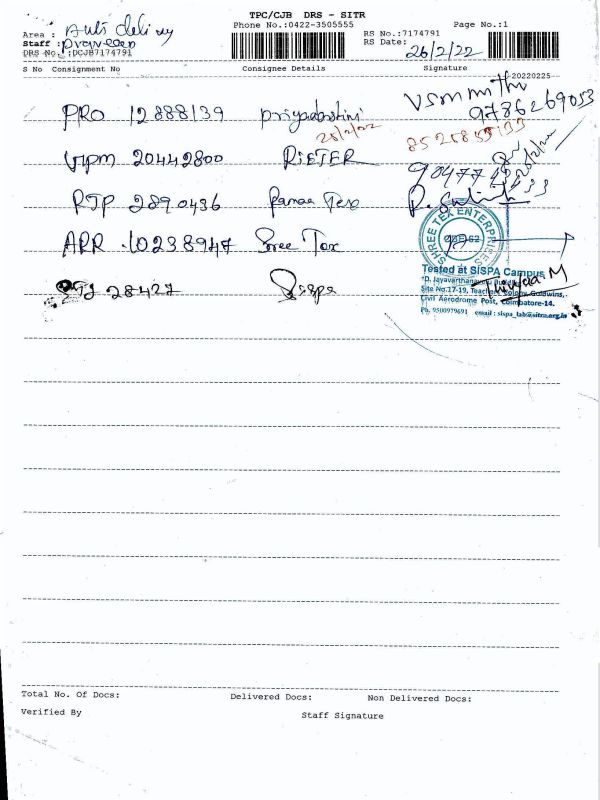 TPC/CJB DRS - SITR
Phone No.:0422-3505555
Page No.:1
Area : Auto delivery
Staff : Praveen
RS No.:7174791
RS Date: 26/2/22
DRS No.:DCJB7174791
S No Consignment No Consignee Details Signature
20220225
PRO 12888139 priyadarshini
9786269053
25/2/22
VPM 20442800 RIETER
RJP 2890436
ARR 10238947 Sree Tex
28427 Sispa
SHREE TEX ENTERPRISES
Tested at SISPA Campus
Site No.17-19, Teachers Colony, Goldwins,
Civil Aerodrome Post, Coimbatore-14.
Ph. 9500979691 email : sispa_lab@sitra.org.in
Total No. Of Docs: Delivered Docs: Non Delivered Docs:
Verified By
Staff Signature